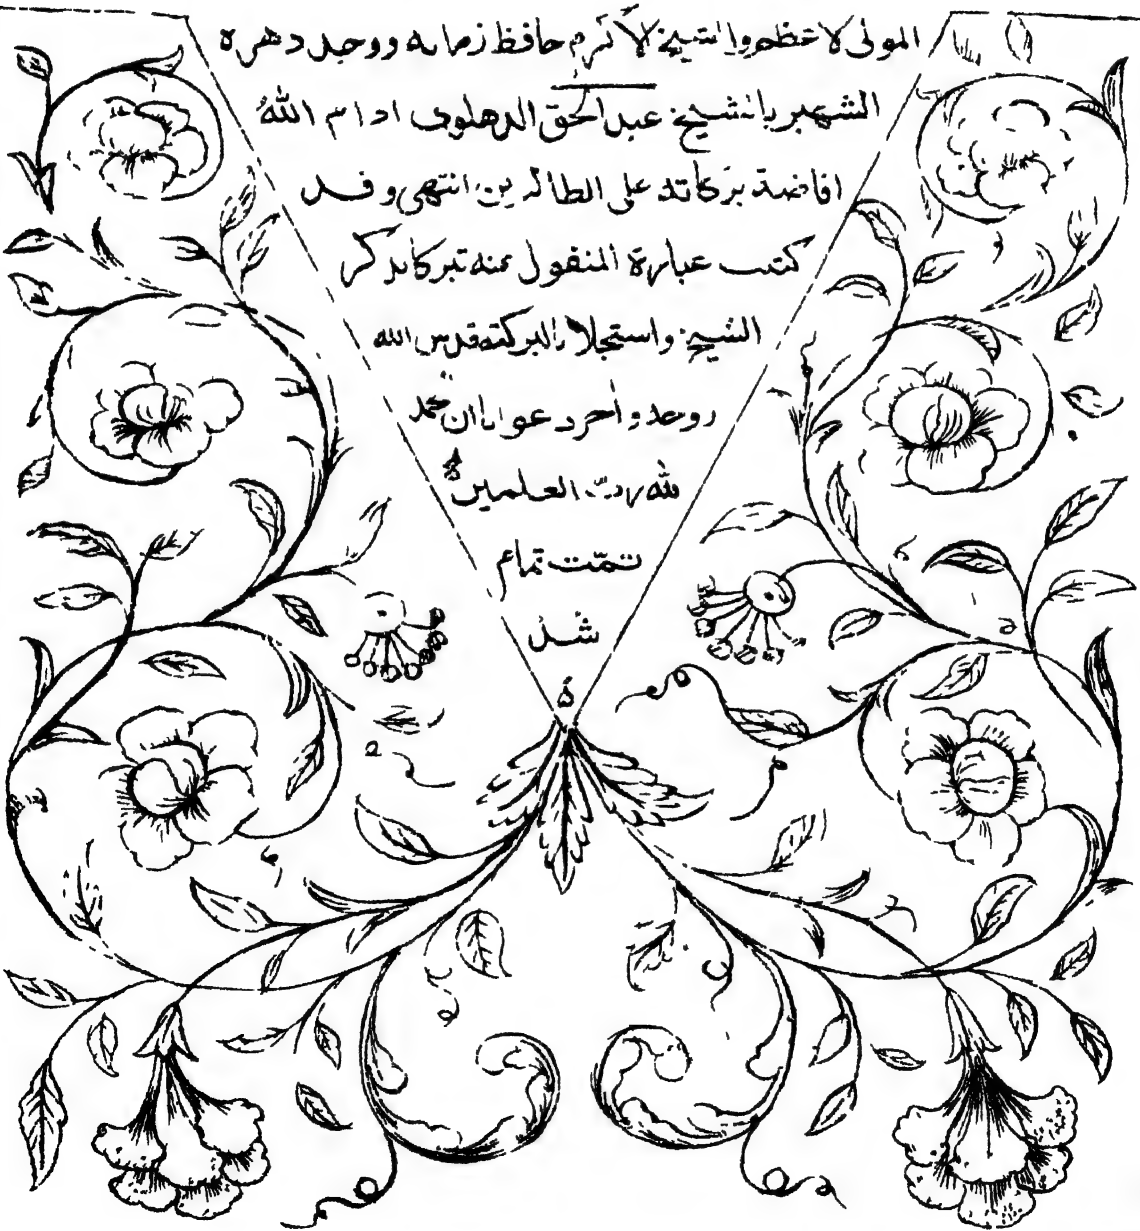 المولى الاعظم والشيخ الاكرم حافظ زمانه ووحيد دهره
الشهير بالشيخ عبد الحق الدهلوى ادام الله
افاضة بركاته على الطالبين انتهى وقد
كتب عبارة المنقول عنه تبركا بذكر
الشيخ واستجلابا لبركته قدس الله
روحه وآخر دعوانا ان الحمد
لله رب العلمين
تمّت تمام
شد